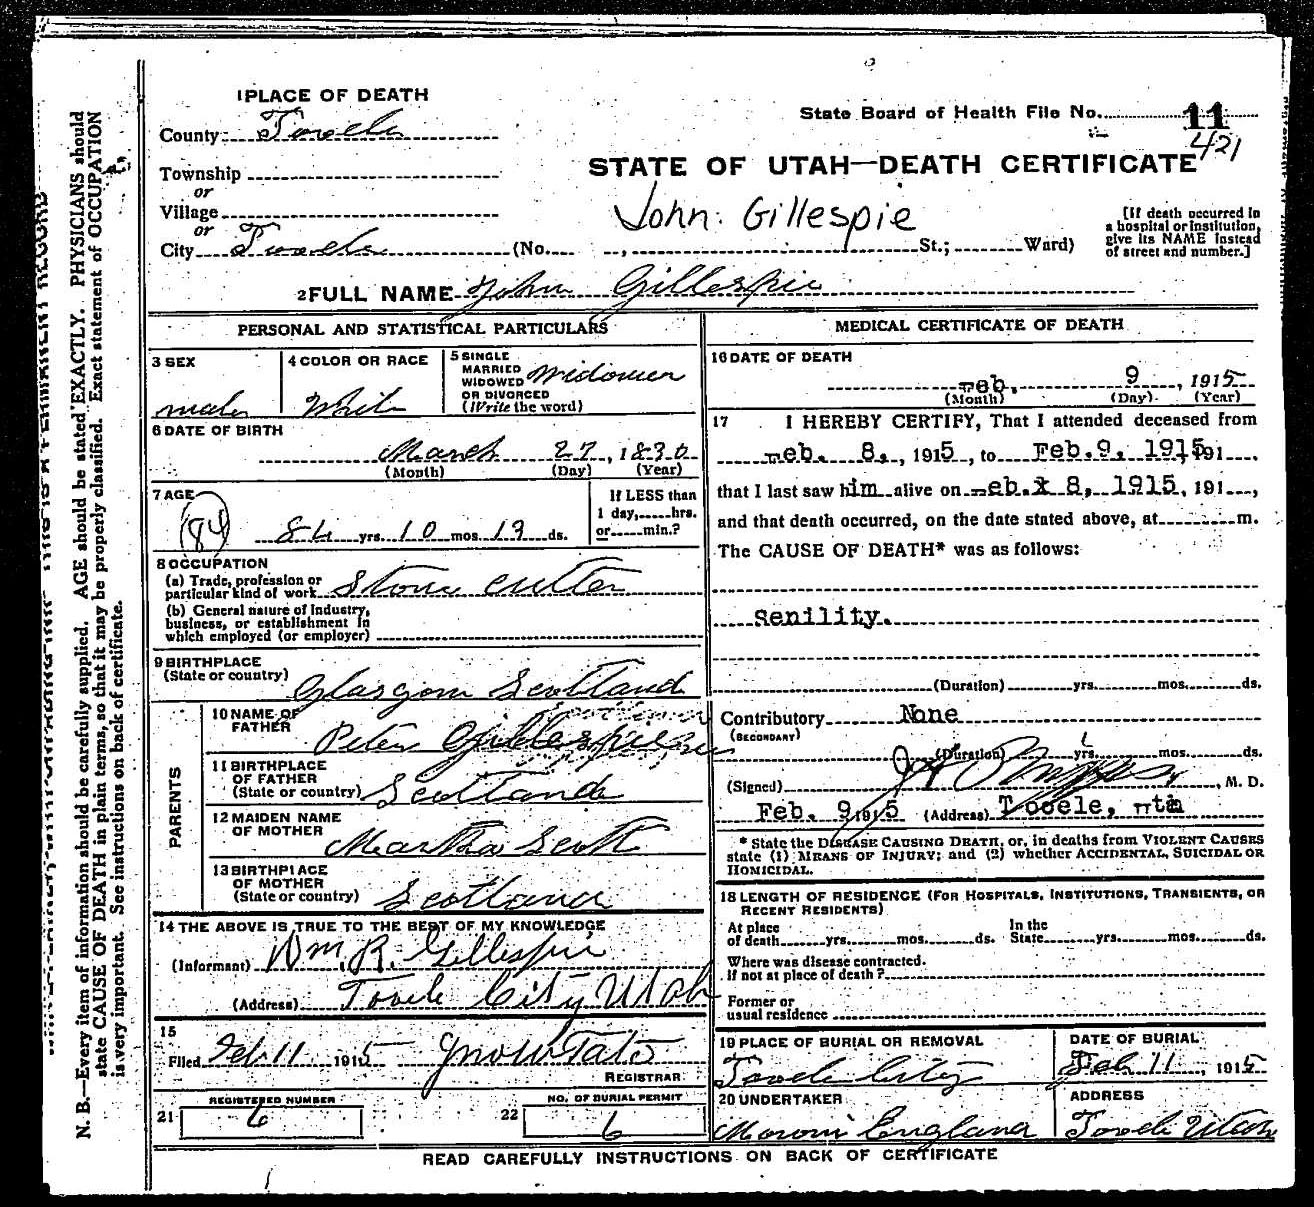 1 PLACE OF DEATH
County Tooele
Township
or
Village
or
City Tooele (No. St.; Ward)
State Board of Health File No. 11
421
STATE OF UTAH—DEATH CERTIFICATE
John Gillespie
[If death occurred in
a hospital or institution,
give its NAME instead
of street and number.]
2 FULL NAME John Gillespie
PERSONAL AND STATISTICAL PARTICULARS
3 SEX
male
4 COLOR OR RACE
White
5 SINGLE
MARRIED
WIDOWED
OR DIVORCED
(Write the word)
Widower
6 DATE OF BIRTH
March 27, 1830
(Month) (Day) (Year)
7 AGE
(84) 84 yrs. 10 mos. 19 ds.
If LESS than
1 day, hrs.
or min.?
8 OCCUPATION
(a) Trade, profession or
particular kind of work Stone cutter
(b) General nature of Industry,
business, or establishment in
which employed (or employer)
9 BIRTHPLACE
(State or country)
Glasgow Scotland
PARENTS
10 NAME OF
FATHER
Peter Gillespie
11 BIRTHPLACE
OF FATHER
(State or country) Scotland
12 MAIDEN NAME
OF MOTHER
Martha Scott
13 BIRTHPLACE
OF MOTHER
(State or country) Scotland
14 THE ABOVE IS TRUE TO THE BEST OF MY KNOWLEDGE
(Informant) Wm. R. Gillespie
(Address) Tooele City Utah
15
Filed Feb 11 1915
REGISTRAR
21 REGISTERED NUMBER
6
22 NO. OF BURIAL PERMIT
6
MEDICAL CERTIFICATE OF DEATH
16 DATE OF DEATH
Feb. 9, 1915
(Month) (Day) (Year)
17 I HEREBY CERTIFY, That I attended deceased from
Feb. 8, 1915, to Feb. 9, 1915, 191
that I last saw him alive on Feb. 8, 1915, 191,
and that death occurred, on the date stated above, at m.
The CAUSE OF DEATH* was as follows:
Senility.
(Duration) yrs. mos. ds.
Contributory None
(SECONDARY)
(Duration) yrs. mos. ds.
(Signed) M. D.
Feb. 9 1915 (Address) Tooele, Utah
* State the DISEASE CAUSING DEATH, or, in deaths from VIOLENT CAUSES
state (1) MEANS OF INJURY; and (2) whether ACCIDENTAL, SUICIDAL OR
HOMICIDAL.
18 LENGTH OF RESIDENCE (FOR HOSPITALS, INSTITUTIONS, TRANSIENTS, OR
RECENT RESIDENTS)
At place
of death yrs. mos. ds.
In the
State yrs. mos. ds.
Where was disease contracted.
If not at place of death?
Former or
usual residence
19 PLACE OF BURIAL OR REMOVAL
Tooele City
DATE OF BURIAL
Feb 11, 1915
20 UNDERTAKER
Moroni England
ADDRESS
Tooele Utah
READ CAREFULLY INSTRUCTIONS ON BACK OF CERTIFICATE
N. B.—Every item of information should be carefully supplied. AGE should be stated EXACTLY. PHYSICIANS should
state CAUSE OF DEATH in plain terms, so that it may be properly classified. Exact statement of OCCUPATION
is very important. See instructions on back of certificate.